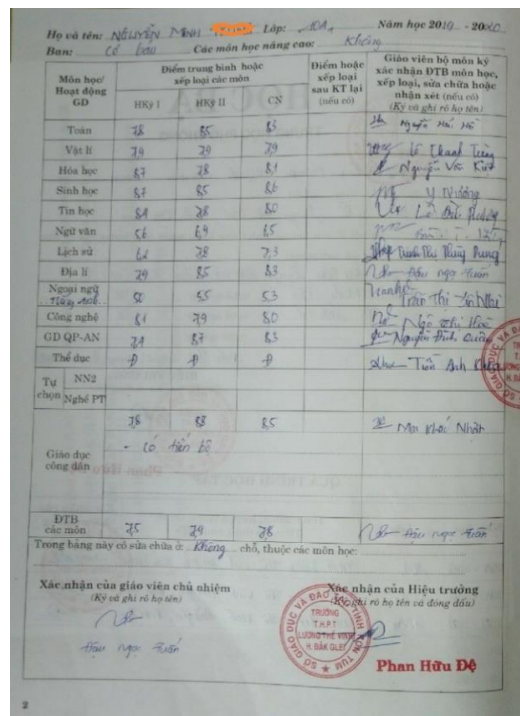 Họ và tên: NGUYỄN MINH Lớp: 10A1 Năm học 2019 - 2020
Ban: Cơ bản Các môn học nâng cao: Không
Môn học/ Hoạt động GD Điểm trung bình hoặc xếp loại các môn Điểm hoặc xếp loại sau KT lại (nếu có) Giáo viên bộ môn ký xác nhận ĐTB môn học, xếp loại, sửa chữa hoặc nhận xét (nếu có) (Ký và ghi rõ họ tên)
HKỳ I HKỳ II CN
Toán 7,8 8,5 8,3 Nguyễn
Vật lí 7,9 7,9 7,9 Thanh
Hóa học 8,7 7,8 8,1 Nguyễn Văn
Sinh học 8,7 8,5 8,6 Y
Tin học 8,4 7,8 8,0 Lê
Ngữ văn 5,6 6,9 6,5
Lịch sử 6,2 7,8 7,3 Trịnh Thị Dung
Địa lí 7,9 8,5 8,3 Đậu Ngọc Tuấn
Ngoại ngữ Tiếng Anh 5,5 5,3 Trần Thị
Công nghệ 8,1 7,9 8,0 Ngô Thị
GD QP-AN 7,4 8,7 8,3 Nguyễn Đình
Thể dục Đ Đ Đ Tiến Anh
Tự chọn NN2
Nghề PT
Giáo dục công dân 7,8 8,8 8,5 Mai Khắc Nhân
- Có tiến bộ
ĐTB các môn 7,5 7,9 7,8 Đậu Ngọc Tuấn
Trong bảng này có sửa chữa ở: Không chỗ, thuộc các môn học:
Xác nhận của giáo viên chủ nhiệm Xác nhận của Hiệu trưởng
(Ký và ghi rõ họ tên) (Ký, ghi rõ họ tên và đóng dấu)
SỞ GIÁO DỤC VÀ ĐÀO TẠO TỈNH KON TUM
TRƯỜNG
T.H.P.T
LƯƠNG THẾ VINH
H. ĐĂK GLEI
Đậu Ngọc Tuấn
Phan Hữu Đệ
2